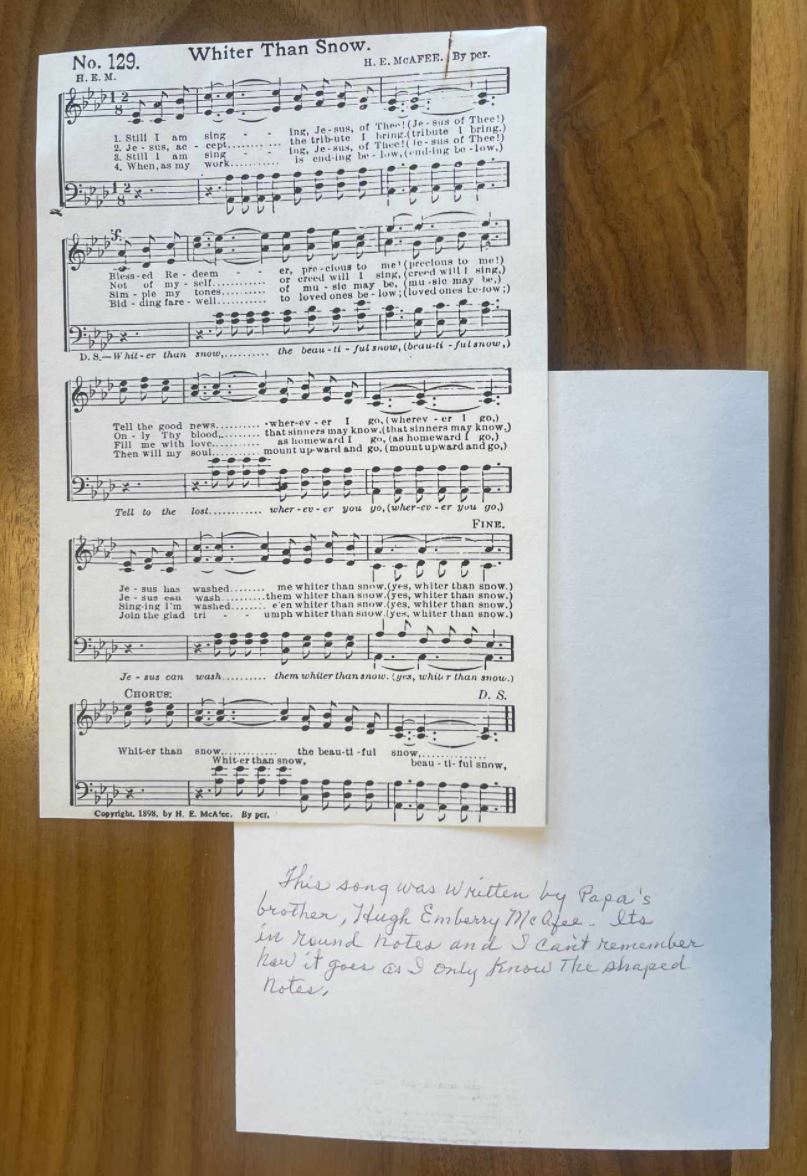 No. 129.
Whiter Than Snow.
H. E. M.
H. E. McAFEE. By per.
1. Still I am sing - - ing, Je-sus, of Thee! (Je-sus of Thee!)
2. Je-sus, ac - cept.......... the trib-ute I bring. (tribute I bring.)
3. Still I am sing - - ing, Je-sus, of Thee! (Je-sus of Thee!)
4. When, as my work............ is end-ing be-low, (end-ing be-low,)
Bless-ed Re-deem - - er, pre-cious to me! (precious to me!)
Not of my-self............ or creed will I sing, (creed will I sing,)
Sim-ple my tones............ of mu-sic may be, (mu-sic may be,)
Bid-ding fare-well............ to loved ones be-low; (loved ones be-low;)
D. S.—Whit-er than snow,.......... the beau-ti-ful snow, (beau-ti-ful snow,)
Tell the good news.......... wher-ev-er I go, (wherev-er I go,)
On-ly Thy blood,.......... that sinners may know, (that sinners may know,)
Fill me with love.......... as homeward I go, (as homeward I go,)
Then will my soul.......... mount up-ward and go, (mount upward and go,)
Tell to the lost............ wher-ev-er you go, (wher-ev-er you go,)
FINE.
Je-sus has washed........ me whiter than snow. (yes, whiter than snow.)
Je-sus can wash......... them whiter than snow. (yes, whiter than snow.)
Sing-ing I'm washed....... e'en whiter than snow. (yes, whiter than snow.)
Join the glad tri - - umph whiter than snow. (yes, whiter than snow.)
Je-sus can wash.......... them whiter than snow. (yes, whiter than snow.)
CHORUS.
D. S.
Whit-er than snow,............ the beau-ti-ful snow,.............
Whit-er than snow, beau-ti-ful snow,
Copyright, 1898, by H. E. McAfee. By per.
This song was written by Papa's
brother, Hugh Emberry McAfee. Its
in round notes and I can't remember
how it goes as I only know the shaped
notes.